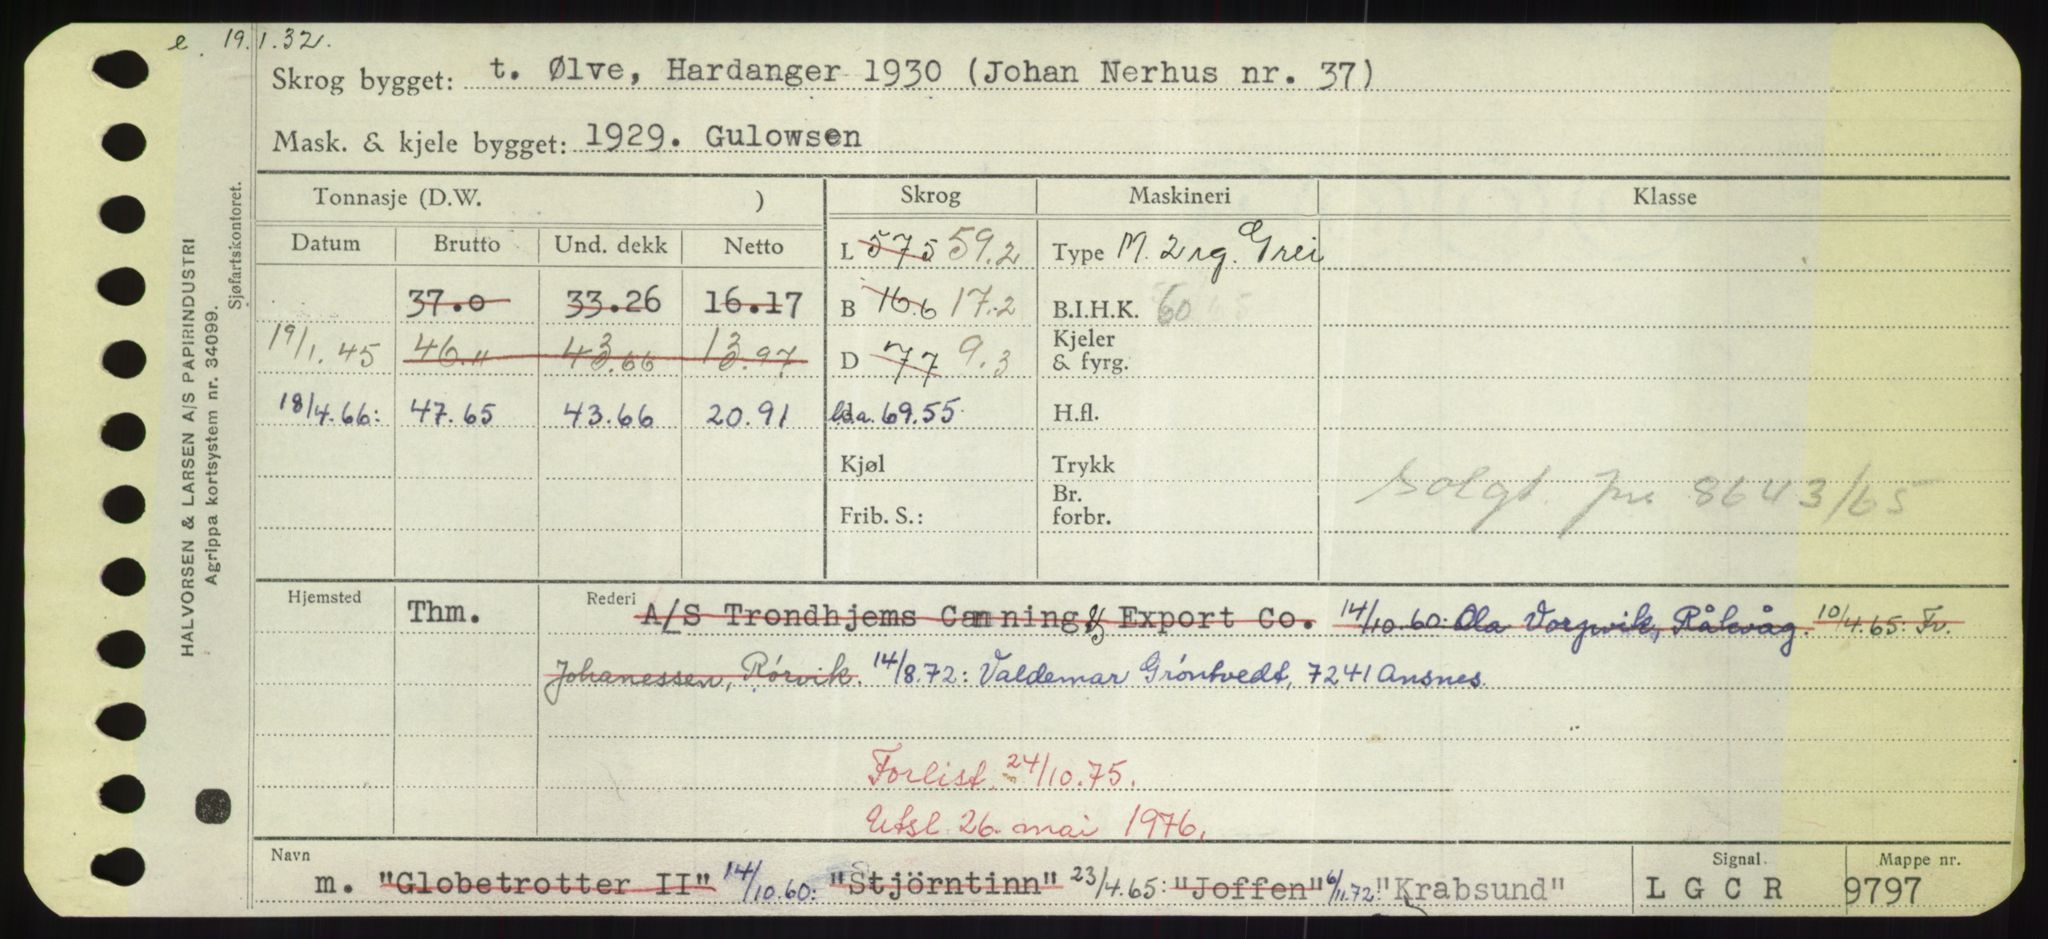 e. 19.1.32.
Skrog bygget: t. Ølve, Hardanger 1930 (Johan Nerhus nr. 37)
Mask. & kjele bygget: 1929. Gulowsen
HALVORSEN & LARSEN A/S PAPIRINDUSTRI
Agrippa kortsystem nr. 34099.
Sjøfartskontoret.
Tonnasje (D.W. ) Skrog Maskineri Klasse
Datum Brutto Und. dekk Netto L 575 59.2 Type M. 2 rg. Grei
37.0 33.26 16.17 B 16.6 17.2 B.I.H.K. 60
19/1.45 46.11 43.66 13.97 D 77 9.3 Kjeler & fyrg.
18/4.66: 47.65 43.66 20.91 l.o.a. 69.55 H.fl.
Kjøl Trykk
Frib. S.: Br. forbr.
Solgt jnr 8643/65
Hjemsted Thm. Rederi A/S Trondhjems Canning & Export Co. 14/10.60: Ola Vorpvik, Råkvåg. 10/4.65: Fr.
Johanessen, Rørvik. 14/8.72: Valdemar Gröntvedt, 7241 Ansnes
Forlist 24/10.75.
Utsl. 26. mai 1976.
Navn Signal Mappe nr.
m. "Globetrotter II" 14/10.60: "Stjörntinn" 23/4.65: "Joffen" 6/11.72: "Krabsund" L G C R 9797